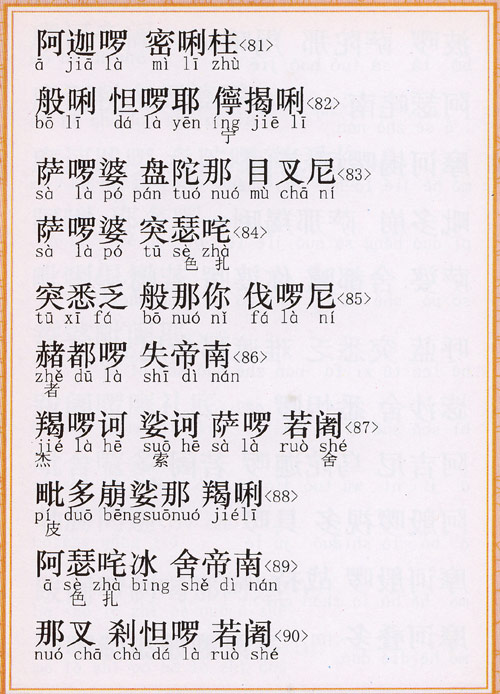 阿迦啰 密唎柱<81>
ā jiā là mì lī zhù
般唎 怛啰耶 儜揭唎<82>
bō lī dá là yēn íng jiē lī
宁
萨啰婆 盘陀那 目叉尼<83>
sà là pó pán tuó nuó mù chā ní
萨啰婆 突瑟咤<84>
sà là pó tū sè zhà
色 扎
突悉乏 般那你 伐啰尼<85>
tū xī fá bō nuó nǐ fá là ní
赭都啰 失帝南<86>
zhě dū là shī dì nán
者
羯啰诃 娑诃 萨啰 若阇<87>
jié là hē suō hē sà là ruò shé
杰 索 舍
毗多崩娑那 羯唎<88>
pí duō bēngsuōnuó jiélī
皮
阿瑟咤冰 舍帝南<89>
ā sè zhà bīng shě dì nán
色 扎
那叉 刹怛啰 若阇<90>
nuó chā chà dá là ruò shé